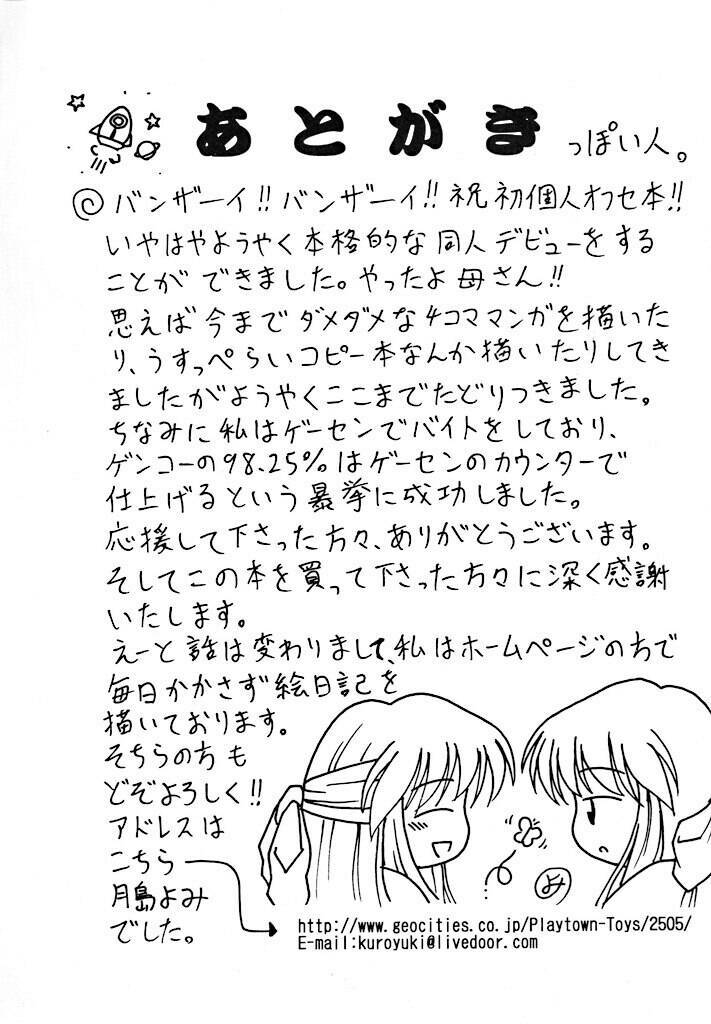 あとがき っぽい人。
◎バンザーイ!!バンザーイ!!祝初個人オフセ本!!
いやはやようやく本格的な同人デビューをする
ことができました。やったよ母さん!!
思えば今までダメダメな4コママンガを描いた
り、うすっぺらいコピー本なんか描いたりしてき
ましたがようやくここまでたどりつきました。
ちなみに私はゲーセンでバイトをしており、
ゲンコーの98.25%はゲーセンのカウンターで
仕上げるという暴挙に成功しました。
応援して下さった方々、ありがとうございます。
そしてこの本を買って下さった方々に深く感謝
いたします。
えーと話は変わりまして、私はホームページの方で
毎日かかさず絵日記を
描いております。
そちらの方も
どぞよろしく!!
アドレスは
こちら
月島よみ
でした。
よみ
http://www.geocities.co.jp/Playtown-Toys/2505/
E-mail:kuroyuki@livedoor.com